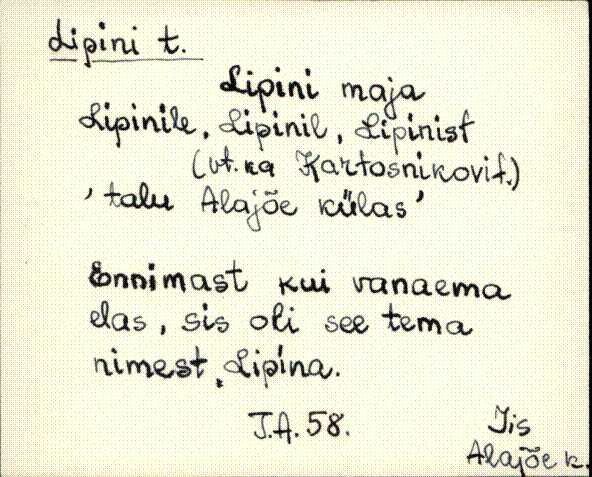 Lipini t.
Lipini maja
Lipinile, Lipinil, Lipinist
(vt. ka Kartosnikovit.)
'talu Alajõe külas'
Ennimast kui vanaema
elas, sis oli see tema
nimest, Lipina.
J.A. 58.
Iis
Alajõe k.